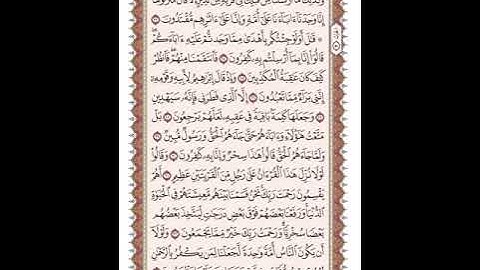 إِنَّا وَجَدْنَآ ءَابَآءَنَا عَلَىٰٓ أُمَّةٍ وَإِنَّا عَلَىٰٓ ءَاثَٰرِهِم مُّقْتَدُونَ ٢٣
۞ قَٰلَ أَوَلَوْ جِئْتُكُم بِأَهْدَىٰ مِمَّا وَجَدتُّمْ عَلَيْهِ ءَابَآءَكُمْ
قَالُوٓا۟ إِنَّا بِمَآ أُرْسِلْتُم بِهِۦ كَٰفِرُونَ ٢٤ فَٱنتَقَمْنَا مِنْهُمْ فَٱنظُرْ
كَيْفَ كَانَ عَٰقِبَةُ ٱلْمُكَذِّبِينَ ٢٥ وَإِذْ قَالَ إِبْرَٰهِيمُ لِأَبِيهِ وَقَوْمِهِۦٓ
إِنَّنِى بَرَآءٌ مِّمَّا تَعْبُدُونَ ٢٦ إِلَّا ٱلَّذِى فَطَرَنِى فَإِنَّهُۥ سَيَهْدِينِ
٢٧ وَجَعَلَهَا كَلِمَةًۢ بَاقِيَةً فِى عَقِبِهِۦ لَعَلَّهُمْ يَرْجِعُونَ ٢٨ بَلْ
مَتَّعْتُ هَٰٓؤُلَآءِ وَءَابَآءَهُمْ حَتَّىٰ جَآءَهُمُ ٱلْحَقُّ وَرَسُولٌ مُّبِينٌ ٢٩
وَلَمَّا جَآءَهُمُ ٱلْحَقُّ قَالُوا۟ هَٰذَا سِحْرٌ وَإِنَّا بِهِۦ كَٰفِرُونَ ٣٠ وَقَالُوا۟
لَوْلَا نُزِّلَ هَٰذَا ٱلْقُرْءَانُ عَلَىٰ رَجُلٍ مِّنَ ٱلْقَرْيَتَيْنِ عَظِيمٍ ٣١ أَهُمْ
يَقْسِمُونَ رَحْمَتَ رَبِّكَ نَحْنُ قَسَمْنَا بَيْنَهُم مَّعِيشَتَهُمْ فِى ٱلْحَيَوٰةِ
ٱلدُّنْيَا وَرَفَعْنَا بَعْضَهُمْ فَوْقَ بَعْضٍ دَرَجَٰتٍ لِّيَتَّخِذَ بَعْضُهُم
بَعْضًا سُخْرِيًّا وَرَحْمَتُ رَبِّكَ خَيْرٌ مِّمَّا يَجْمَعُونَ ٣٢ وَلَوْلَآ
أَن يَكُونَ ٱلنَّاسُ أُمَّةً وَٰحِدَةً لَّجَعَلْنَا لِمَن يَكْفُرُ بِٱلرَّحْمَٰنِ